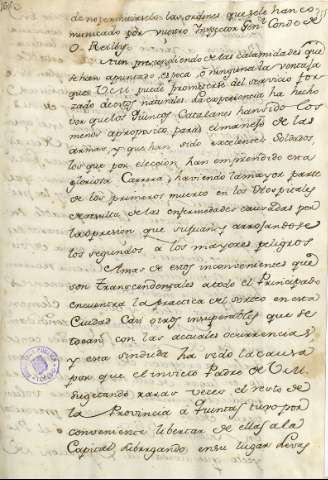 de no permanecer las ordenes que se le han co-
municado por vuestro Inspector Gen.l Conde de
O Reilly.
Aun prescindiendo de las calamidades que
se han apuntado es poca o ninguna la ventaja
que V.M. puede prometerse del servicio for
zado de estos naturales. La experiencia ha hecho
ver que los Quintos Catalanes han sido los
menos aproposito para el manejo de las
armas, y que han sido excelentes Soldados
los que por eleccion han emprendido esta
gloriosa Carrera; haviendo la mayor parte
de los primeros muerto en los Ospitales
de las enfermedades causadas por
la opresion que sufrian y arrojandose
los segundos, a los mayores peligros
Amas de estos inconvenientes que
son transcendentales a todo el Principado
encuentra la practica del sorteo en esta
Ciudad Casi otros insuperables que se
tocan con las actuales ocurrencias,
y esta sin duda ha sido la causa
por que el invicto Padre de V.M.
sugetando raras veces el resto de
la Provincia a Quintas tuvo por
conveniente libertar de ellas a la
Capital obligando, en su lugar